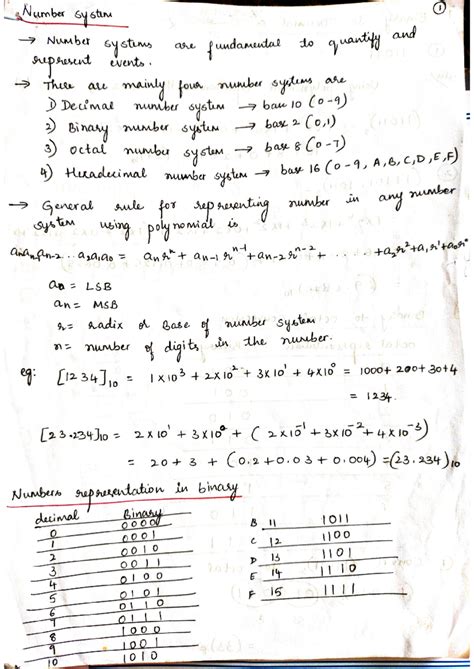 ①
Number system
→ Number systems are fundamental to quantify and
represent events.
→ There are mainly four number systems are
1) Decimal number system → base 10 (0-9)
2) Binary number system → base 2 (0,1)
3) octal number system → base 8 (0-7)
4) Hexadecimal number system → base 16 (0-9, A, B, C, D, E, F)
→ General rule for representing number in any number
system using polynomial is
aₙaₙ₋₁aₙ₋₂...a₂a₁a₀ = aₙrⁿ + aₙ₋₁rⁿ⁻¹ + aₙ₋₂rⁿ⁻² + ...... + a₂r² + a₁r¹ + a₀r⁰
a₀ = LSB
aₙ = MSB
r = radix or Base of number system
n = number of digits in the number.
eg: [1234]₁₀ = 1×10³ + 2×10² + 3×10¹ + 4×10⁰ = 1000+200+30+4
= 1234.
[23.234]₁₀ = 2×10¹ + 3×10⁰ + (2×10⁻¹ + 3×10⁻² + 4×10⁻³)
= 20+3 + (0.2+0.03+0.004) = (23.234)₁₀
Numbers representation in binary
decimal Binary
0 0000
1 0001
2 0010
3 0011
4 0100
5 0101
6 0110
7 0111
8 1000
9 1001
10 1010
B 11 1011
C 12 1100
D 13 1101
E 14 1110
F 15 1111